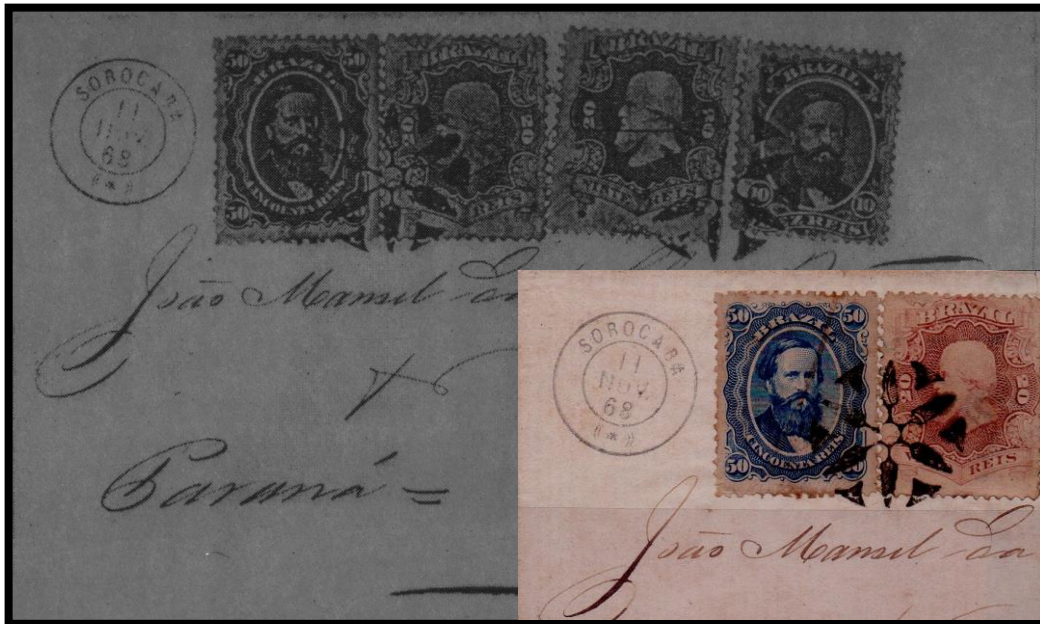 SOROCABA
11
NOV.
68
50 50
BRAZIL
CINCOENTA REIS
50 50
BRAZIL
20 20
REIS
BRAZIL
20 20
REIS
BRAZIL
10 10
REIS
João Manoel da
Paraná =
SOROCABA
11
NOV.
68
50 50
BRAZIL
CINCOENTA REIS
50 50
BRAZIL
20 20
REIS
João Manoel da